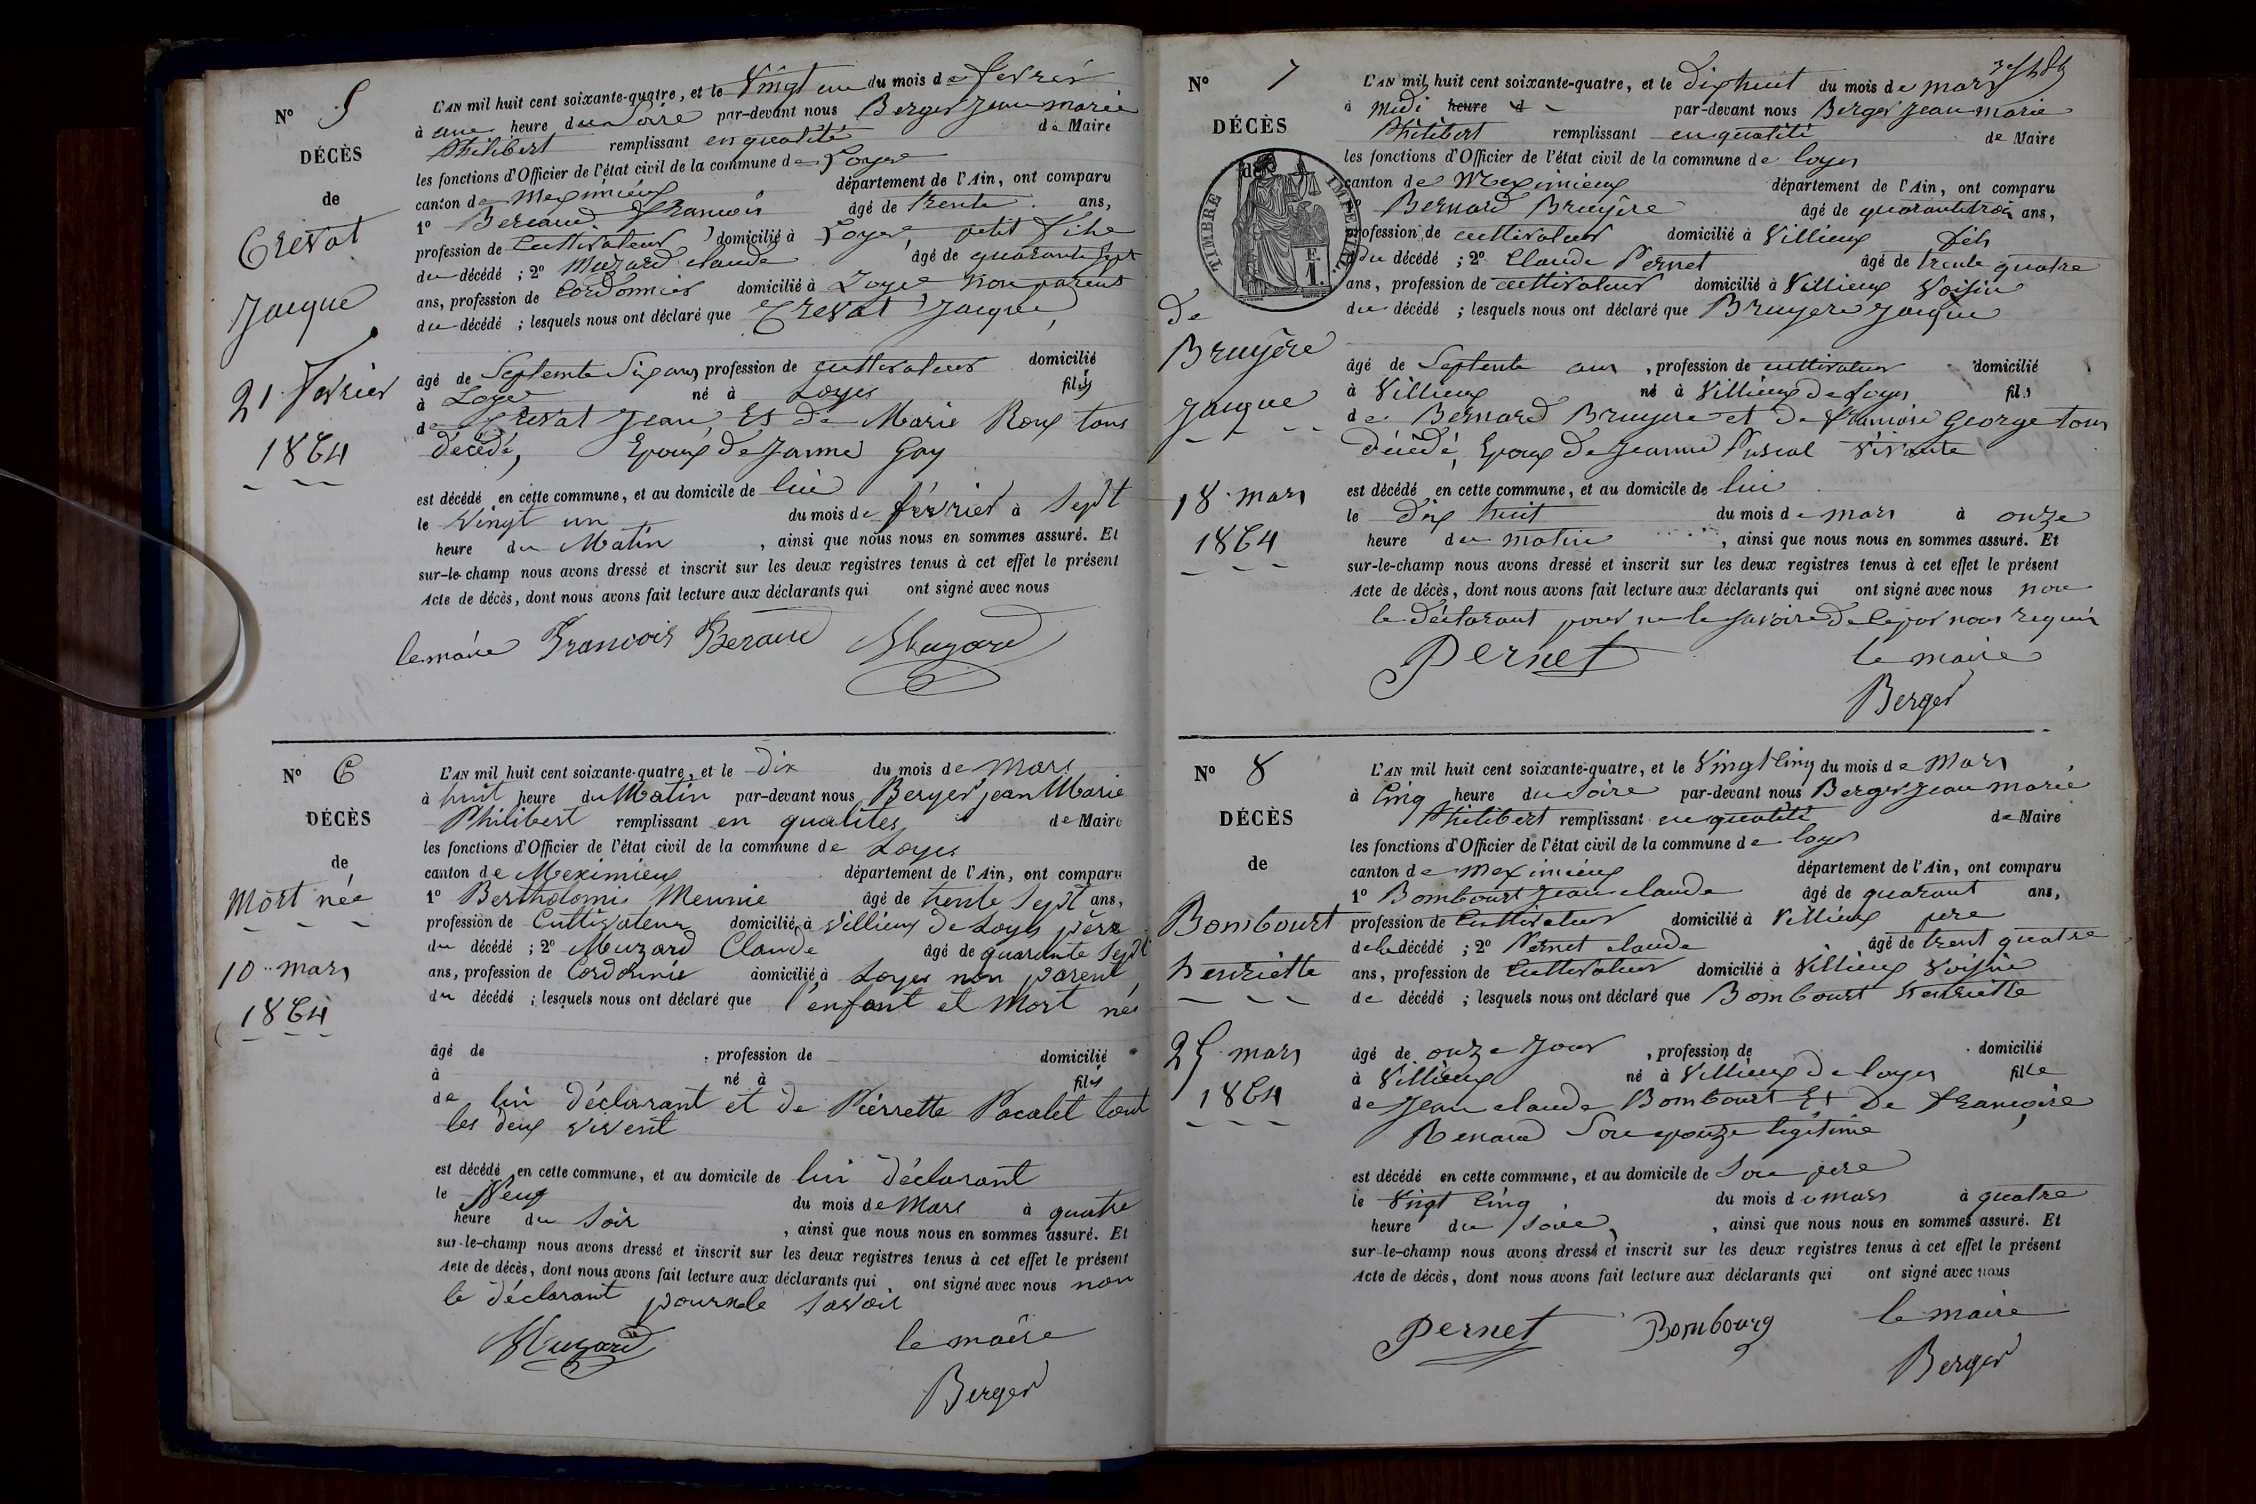 N° 5
DÉCÈS
de
Crevat
Jacque
21 Fevrier
1864
L'AN mil huit cent soixante-quatre, et le Vingt un du mois de fevrier
à une heure du Soire par-devant nous Berger Jean marie
Philibert remplissant en qualité de Maire
les fonctions d'Officier de l'état civil de la commune de Loyes
canton de Meximieux département de l'Ain, ont comparu
1° Beraud François âgé de trente ans,
profession de Cultivateur domicilié à Loyes, petit fils
du décédé ; 2° Muzard claude âgé de quarante sept
ans, profession de Cordonnier domicilié à Loyes non parent
du décédé ; lesquels nous ont déclaré que Crevat Jacque,
âgé de Septente Six ans, profession de cultivateur domicilié
à Loyes né à Loyes fils
de Crevat Jean, Et de Marie Roux tous
décédé, Epoux de Janne Gay
est décédé en cette commune, et au domicile de lui
le Vingt un du mois de février à Sept
heure du Matin, ainsi que nous nous en sommes assuré. Et
sur-le-champ nous avons dressé et inscrit sur les deux registres tenus à cet effet le présent
Acte de décès, dont nous avons fait lecture aux déclarants qui ont signé avec nous
le maire François Beraud Muzard
N° 6
DÉCÈS
de
Mort née
10 mars
1864
L'AN mil huit cent soixante-quatre, et le dix du mois de Mars
à huit heure du Matin par-devant nous Berger jean Marie
Philibert remplissant en qualités de Maire
les fonctions d'Officier de l'état civil de la commune de Loyes
canton de Meximieux département de l'Ain, ont comparu
1° Bertholomie Meunie âgé de trente Sept ans,
profession de Cultivateur domicilié à Villieux de Loyes père
du décédé ; 2° Muzard Claude âgé de quarante Sept
ans, profession de Cordonnie domicilié à Loyes non parent
du décédé ; lesquels nous ont déclaré que l'enfant et Mort née
âgé de , profession de domicilié
à né à fils
de lui déclarant et de Pierrette Pacalet tout
les deux vivent
est décédé en cette commune, et au domicile de lui déclarant
le Neuf du mois de Mars à quatre
heure du Soir, ainsi que nous nous en sommes assuré. Et
sur-le-champ nous avons dressé et inscrit sur les deux registres tenus à cet effet le présent
Acte de décès, dont nous avons fait lecture aux déclarants qui ont signé avec nous non
le déclarant pour ne le savoir
Muzard le maire
Berger
N° 7
DÉCÈS
de
TIMBRE IMPERIAL
F. 1.
de
Bruyère
Jacque
18 mars
1864
L'AN mil huit cent soixante-quatre, et le dix huit du mois de mars
à Midi heure d par-devant nous Berger Jean marie
Philibert remplissant en qualité de Maire
les fonctions d'Officier de l'état civil de la commune de loyes
canton de Meximieux département de l'Ain, ont comparu
1° Bernard Bruyère âgé de quarante trois ans,
profession de cultivateur domicilié à Villieux fils
du décédé ; 2° Claude Pernet âgé de trente quatre
ans, profession de cultivateur domicilié à Villieux Voisin
du décédé ; lesquels nous ont déclaré que Bruyere Jacque
âgé de Septente ans, profession de cultivateur domicilié
à Villieux né à Villieux de Loyes fils
de Bernard Bruyere et de Françoise George tous
décédé, Epoux de Jeanne Pascal Vivante
est décédé en cette commune, et au domicile de lui
le dix huit du mois de mars à onze
heure du matin, ainsi que nous nous en sommes assuré. Et
sur-le-champ nous avons dressé et inscrit sur les deux registres tenus à cet effet le présent
Acte de décès, dont nous avons fait lecture aux déclarants qui ont signé avec nous non
le déclarant pour ne le savoire de ce par nous requis
Pernet le maire
Berger
N° 8
DÉCÈS
de
Bombourt
henriette
25 mars
1864
L'AN mil huit cent soixante-quatre, et le Vingt Cinq du mois de Mars
à Cinq heure du Soire par-devant nous Berger Jean marie
Philibert remplissant en qualité de Maire
les fonctions d'Officier de l'état civil de la commune de loyes
canton de Meximieux département de l'Ain, ont comparu
1° Bombourt Jean claude âgé de quarant ans,
profession de Cultivateur domicilié à Villieux pere
de le décédé ; 2° Pernet claude âgé de trent quatre
ans, profession de Cultivateur domicilié à Villieux Voisin
de décédé ; lesquels nous ont déclaré que Bombourt henriette
âgé de onze Jour, profession de domicilié
à Villieux né à Villieux de loyes fille
de Jean claude Bombourt Et De Françoise
Renaud Son epouze legitime
est décédé en cette commune, et au domicile de Son pere
le Vingt Cinq du mois de mars à quatre
heure du Soire, ainsi que nous nous en sommes assuré. Et
sur-le-champ nous avons dressé et inscrit sur les deux registres tenus à cet effet le présent
Acte de décès, dont nous avons fait lecture aux déclarants qui ont signé avec nous
Pernet Bombourg le maire
Berger